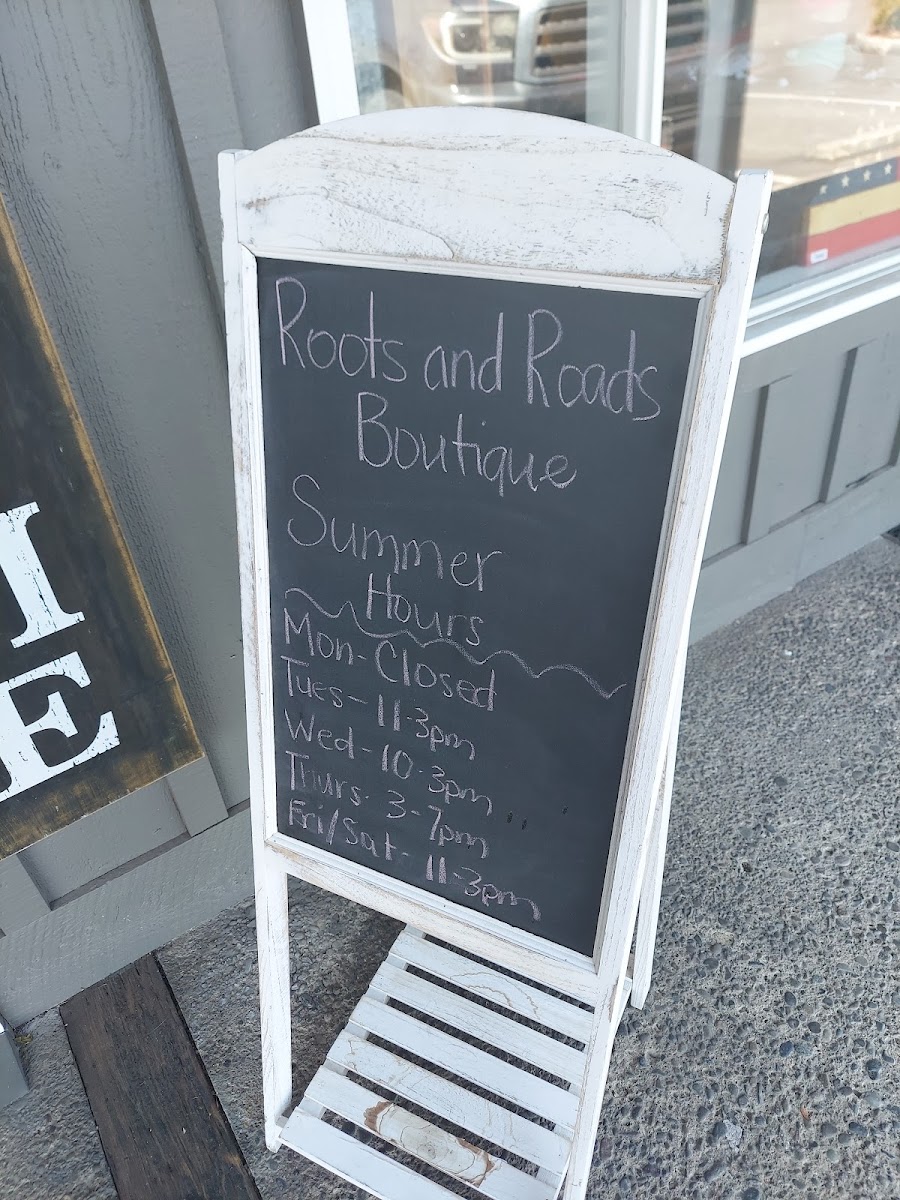 Roots and Roads
Boutique
Summer
Hours
Mon- Closed
Tues- 11-3pm
Wed- 10-3pm
Thurs- 3-7pm
Fri/Sat- 11-3pm
I
E